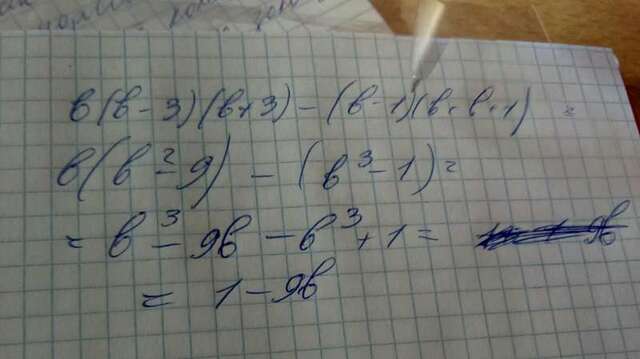 в(в-3)(в+3)-(в-1)(в+в+1) =
в(в²-9) - (в³-1)=
= в³-9в-в³+1= 9в
= 1-9в